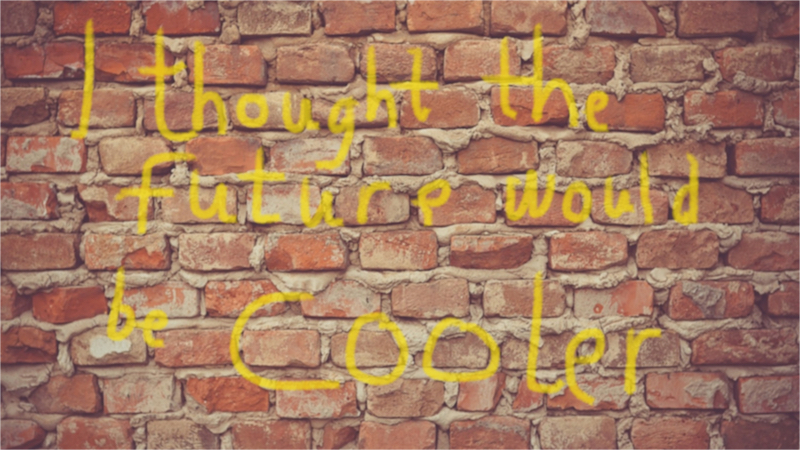 I thought the
future would
be Cooler